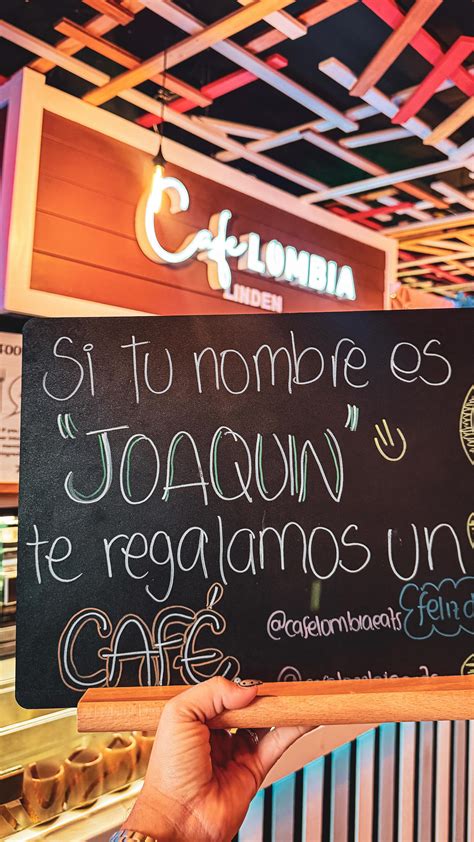 Cafe LOMBIA
LINDEN
Si tu nombre es
"JOAQUIN"
te regalamos un
CAFÉ
@cafelombiaeats
feliz d